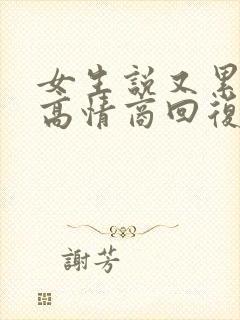 女生説又累
高情商回復
謝芳